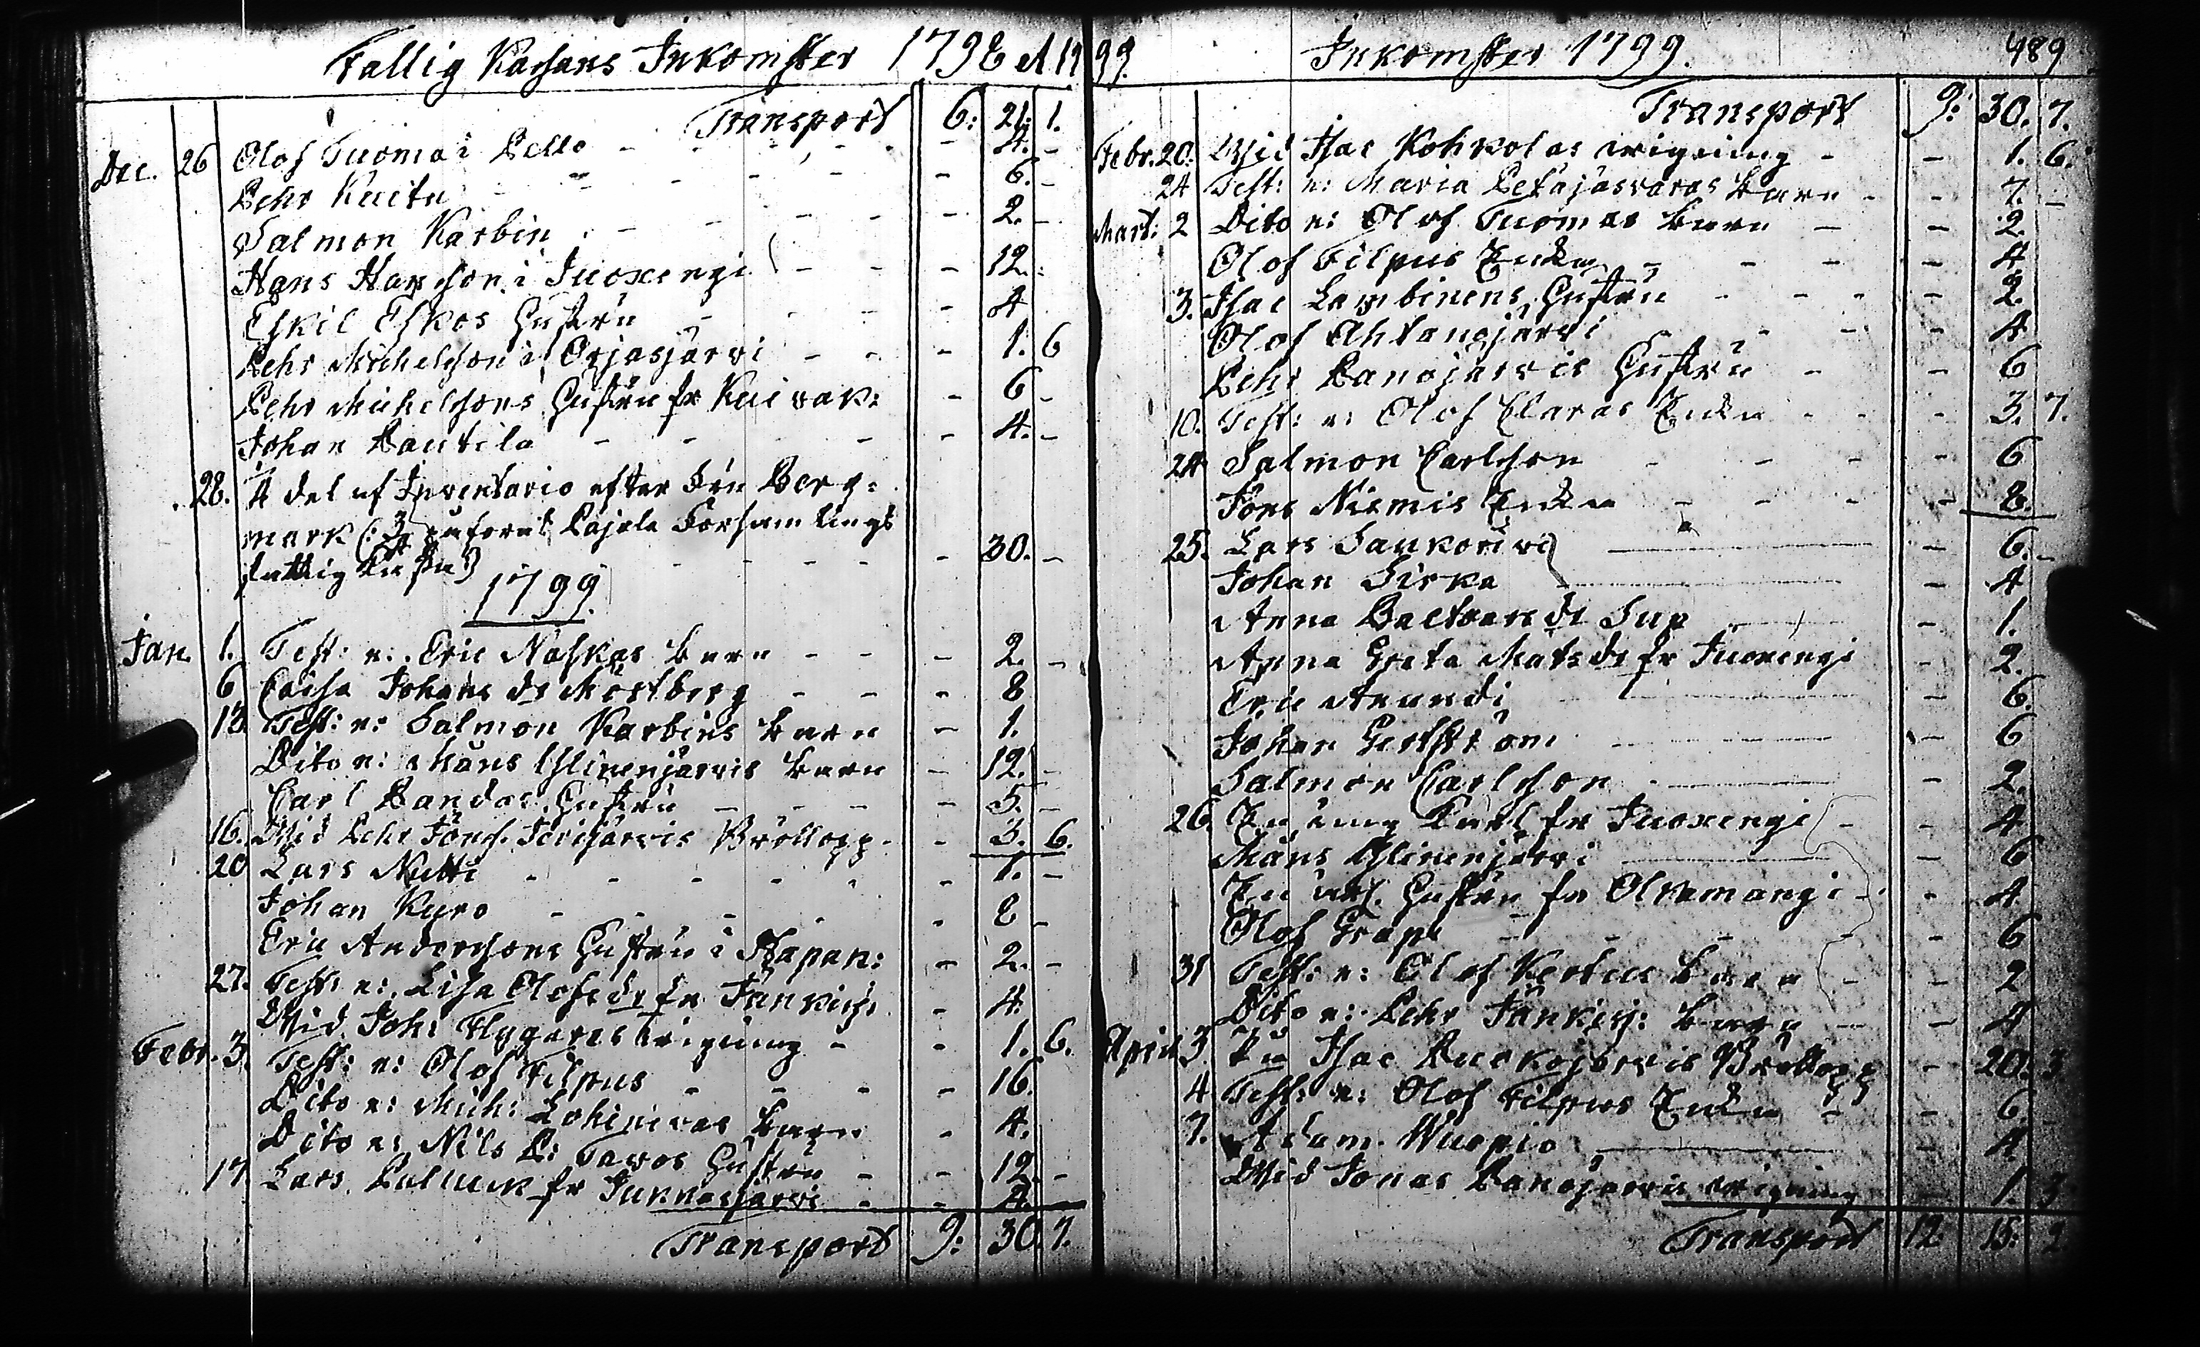 Fattig Kassans Inkomster 1798 et 1799.
Transport 6: 21. 1.
Dec. 26 Olof Tuoma i Pello - 4. -
Pehr Kuitu - 6. -
Salmon Karbin - 2. -
Hans Hansson i Juoxengi - 12.
Eskil Eskos Hustru - 4
Pehr Michelsson i Orjasjärvi - 1. 6
Pehr Michelsons Hustru fr Kuivak: - 6 -
Johan Pantila - 4. -
28. ¼ del af Inventario efter Berg=
mark (: ¾ Pajala Församlings
fattig Cassa) - 30. -
1799.
Jan. 1. Test: n: Eric Naskas barn - 2. -
6 Caisa Johans dr Mörtberg - 8
13 Test: n: Salmon Karbins barn - 1.
Dito n: Måns Ylinenjärvis barn - 12. -
Carl Pandas Hustru - 5. -
16. Wid Pehr Jönss. Bröllopp - 3. 6.
20 Lars Nutti - 1. -
Johan Kyrö - 8 -
Eric Anderssons Hustru i Haapan: - 2. -
27. Test: n: Lisa Olofs dr fr Junkisj: - 4.
Wid Joh: Flygares wigning - 1. 6.
Febr. 3. Test: n: Olof Filpus - 16.
Dito n: Mich: Lohinivas barn - 4.
Dito n: Nils P: Tavos Hustru - 12. -
17 Lars fr Jukkasjärvi - 4.
Transport 9: 30. 7.
Inkomster 1799. 489
Transport 9: 30. 7.
Febr. 20. Wid Isac Kohkolas wigning - 1. 6.
24 Test: n: Maria Petäjäsvaras barn - 7. -
Mart: 2 Dito n: Olof Tuomas barn - 2.
Olof Filpus Enka - 4
3. Isac Lambinens Hustru - 2.
Olof Ahtanojärvi - 4
Pehr Panojärvis Hustru - 6
10. Test: n: Olof Claras Enka - 3. 7.
24 Salmon Carlsson - 6
Jöns Niemis Enka - 8.
25. Lars - 6. -
Johan Sirka - 4
Anna Baltzars dr - 1.
Anna Greta Mats dr fr Juoxengi - 2.
Eric Anundi - 6.
Johan - 6
Salmon Carlsson - 2.
26. fr Juoxengi - 4
Måns Ylinenjärvi - 6
Hustru fr Olkamangi - 4
Olof Grape - 6
31 Test: n: Olof barn - 2
Dito n: Pehr Junkisj: barn - 4
April 3 På Isac Puskojärvis Bröllopp - 20. 3.
4 Test: n: Olof Filpus Enka - 6
7. Adam Wuopio - 4
Wid Jonas Panojärvis wigning - 1. 3
Transport 12. 15: 2